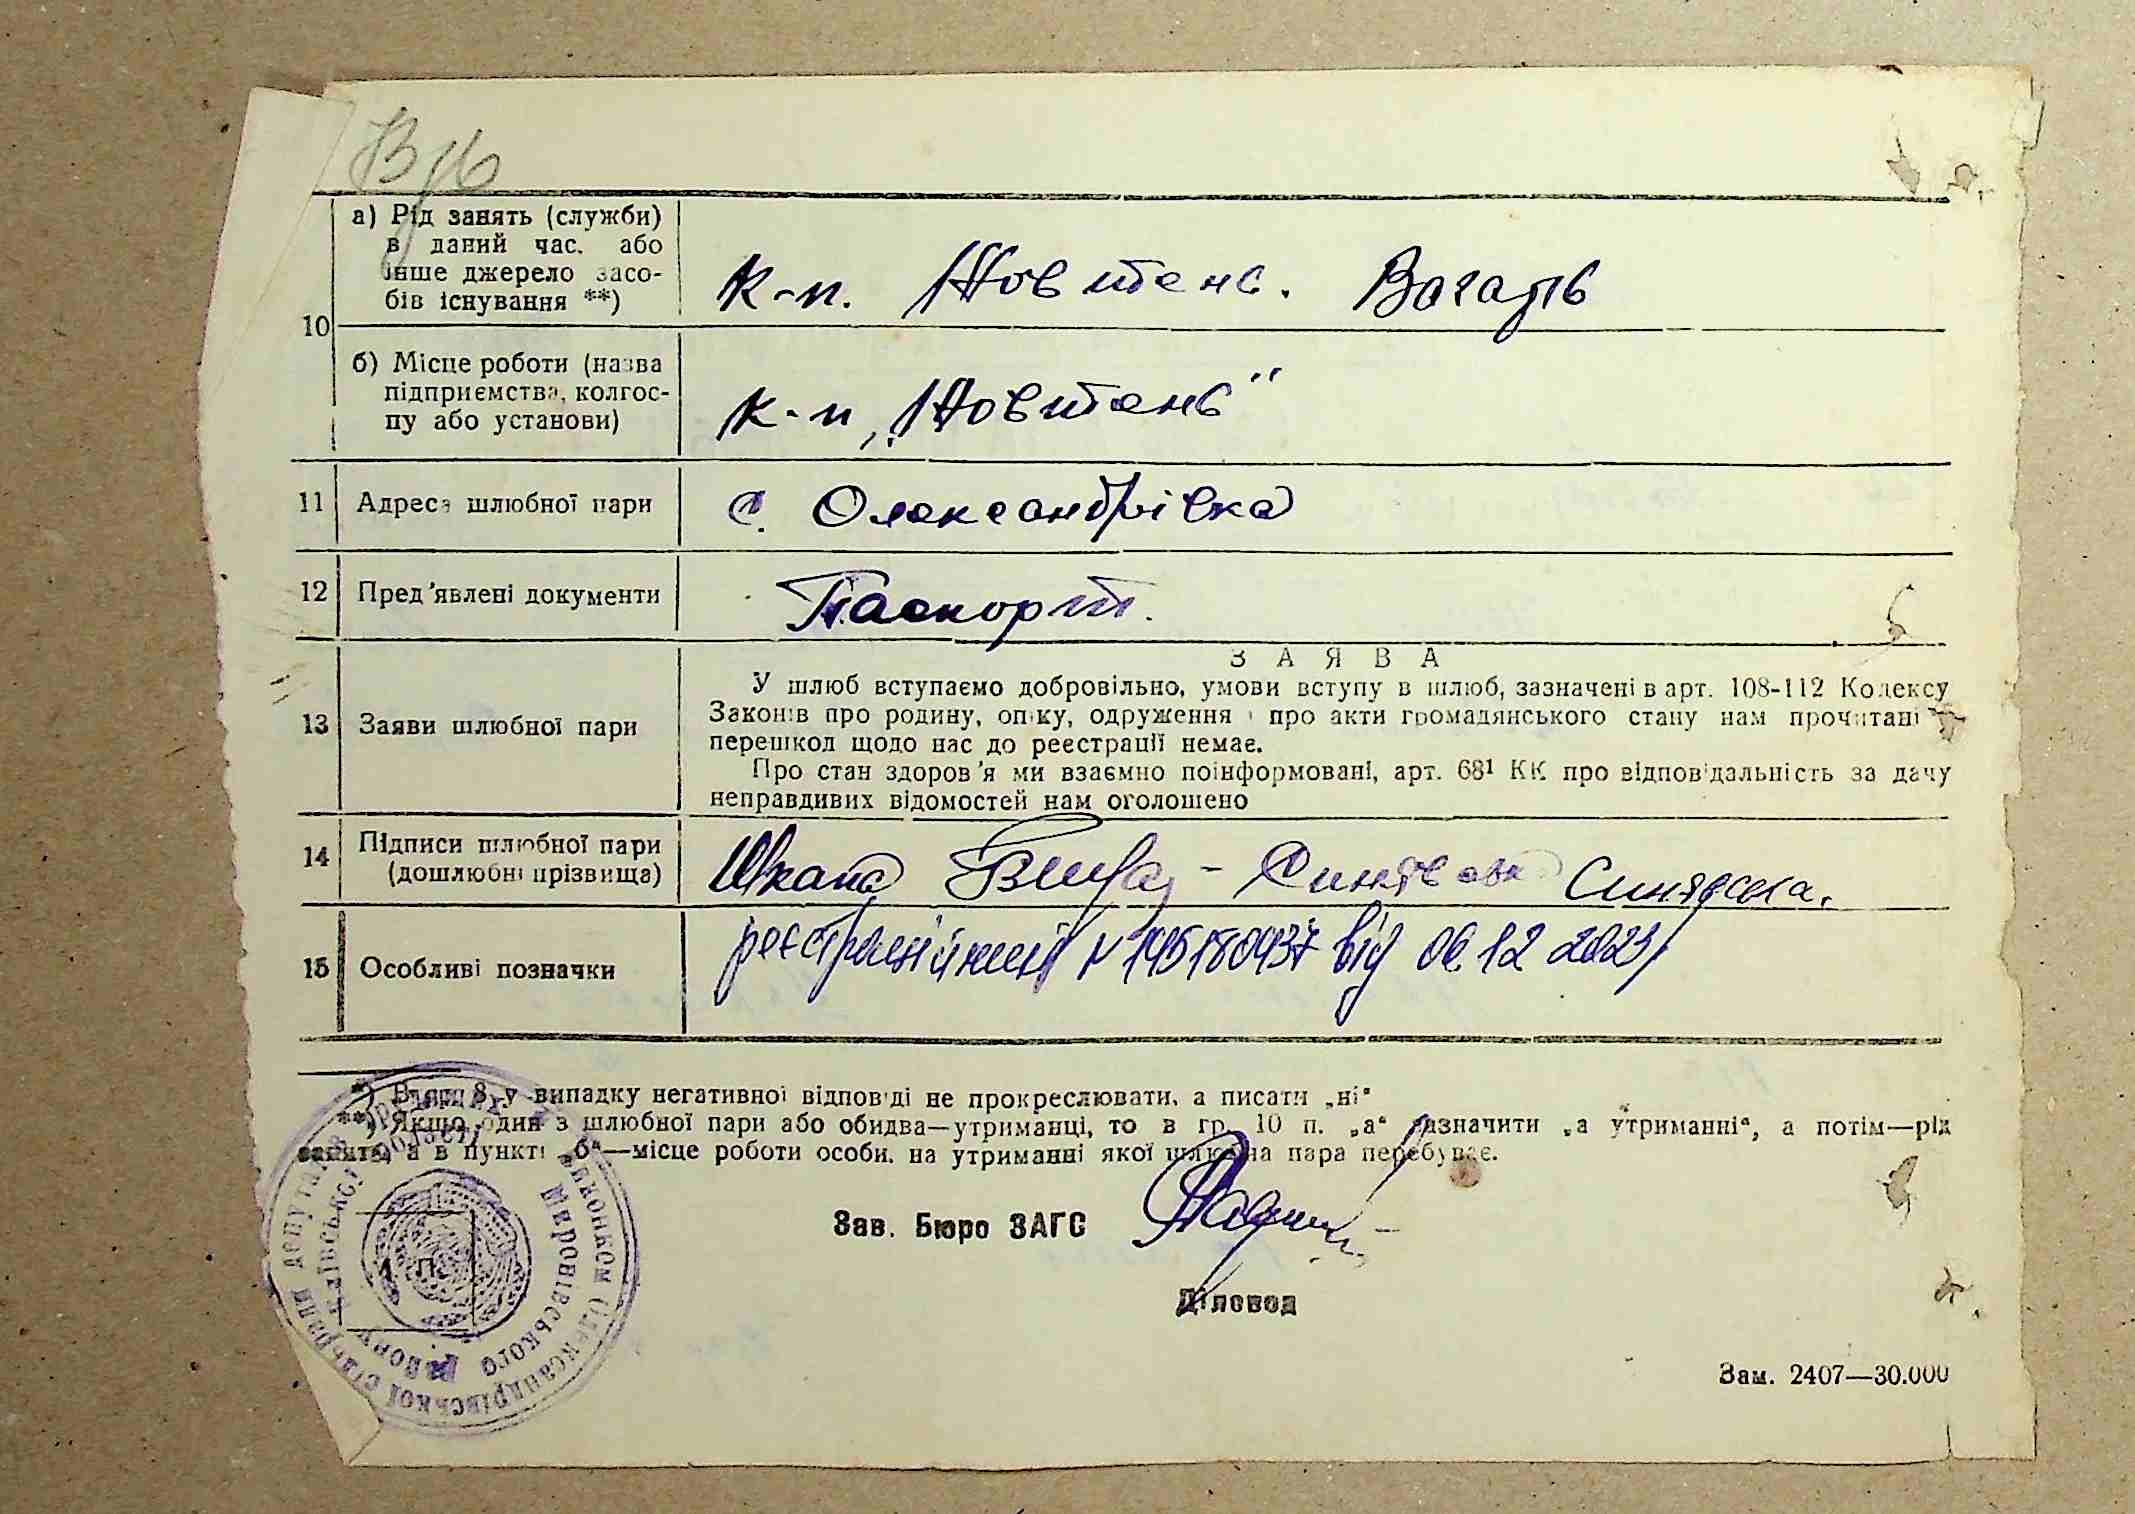 10
а) Рід занять (служби)
в даний час. або
інше джерело засо-
бів існування **)
к-п. Жовтень.
б) Місце роботи (назва
підприємства, колгос-
пу або установи)
к-п „Жовтень"
11 Адреса шлюбної пари с. Олександрівка
12 Пред'явлені документи Паспорт.
13 Заяви шлюбної пари
ЗАЯВА
У шлюб вступаємо добровільно, умови вступу в шлюб, зазначені в арт. 108-112 Кодексу
Законів про родину, опіку, одруження і про акти громадянського стану нам прочитані
перешкод щодо нас до реєстрації немає.
Про стан здоров'я ми взаємно поінформовані, арт. 68¹ КК про відповідальність за дачу
неправдивих відомостей нам оголошено
14 Підписи шлюбної пари
(дошлюбні прізвища)
Шкапа
15 Особливі позначки
реєстраційний N 145180437 від 06 12 2023
*) В гр. 8 у випадку негативної відповіді не прокреслювати, а писати „ні"
**) Якщо один з шлюбної пари або обидва—утриманці, то в гр. 10 п. „а" зазначити „а утриманні", а потім—рід
занять, а в пункті „б"—місце роботи особи, на утриманні якої шлюбна пара перебуває.
Зав. Бюро ЗАГС
Діловод
Виконком Олександрівської сільради депутатів трудящих
Миронівського району Київської області
Зам. 2407—30.000